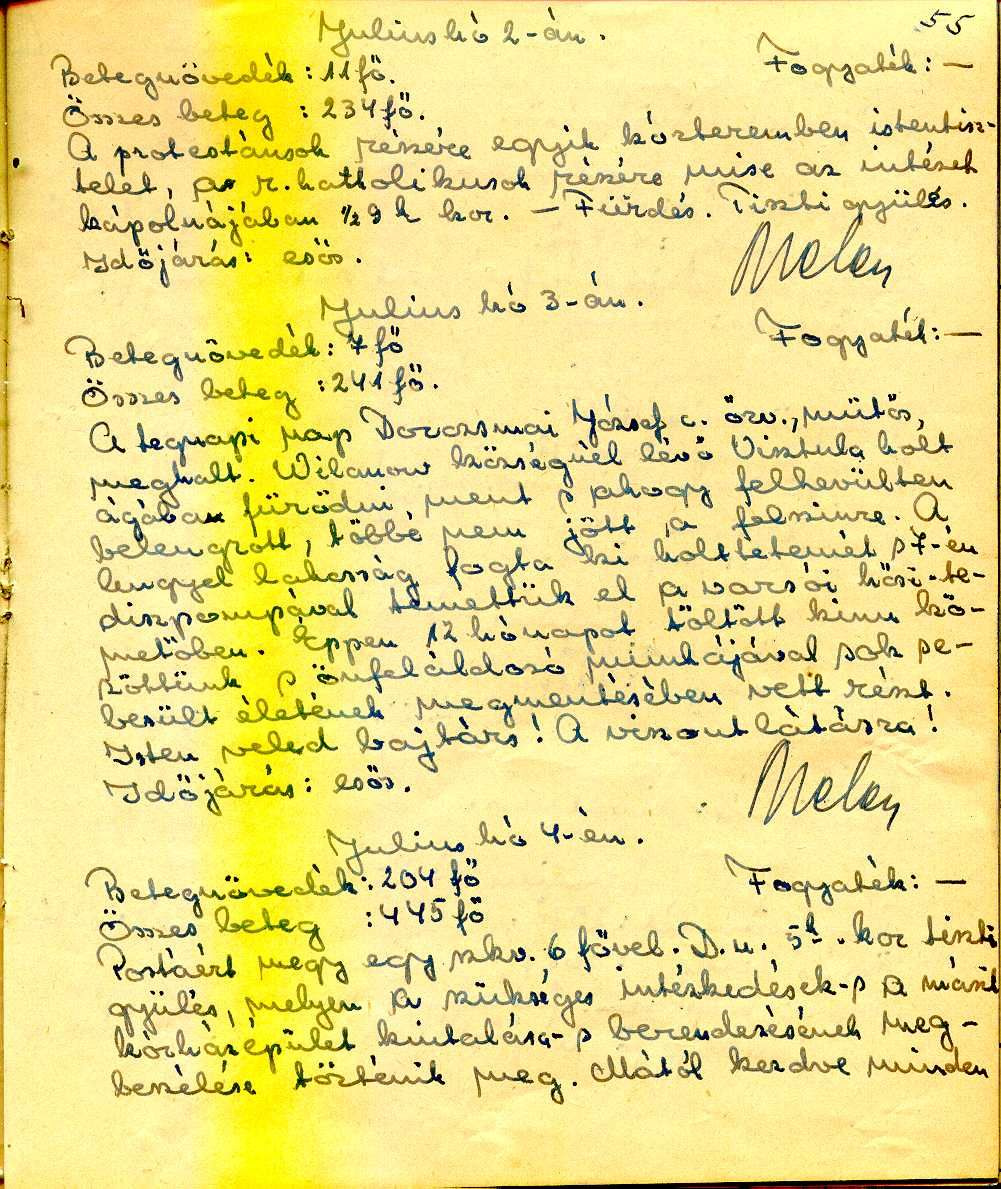 55
Julius hó 2-án.
Betegnövedék: 11 fő. Fogyaték: —
Összes beteg : 234 fő.
A protestánsok részére egyik közteremben istentisz-
telet, a r. kattolikusok részére mise az intézet
kápolnájában ½9 h kor. — Fürdés. Tiszti gyülés.
Időjárás: esős.
Julius hó 3-án.
Betegnövedék: 7 fő Fogyaték: —
Összes beteg : 241 fő.
A tegnapi nap Dorozsmai József c. őrv., műtős,
meghalt. Wilanow községnél lévő Visztula holt
ágában fürödni ment s ahogy felhevülten
beleugrott, többé nem jött a felszinre. A
lengyel lakosság fogta ki holttetemét s 7-én
diszpompával temettük el a varsói hősi-te-
metőben. Éppen 12 hónapot töltött kinn kö-
zöttünk s önfeláldozó munkájával sok se-
besült életének megmentésében vett részt.
Isten veled bajtárs! A viszontlátásra!
Időjárás: esős.
Julius hó 4-én.
Betegnövedék: 204 fő Fogyaték: —
Összes beteg : 445 fő
Postáért megy egy szkv. 6 fővel. D.u. 5h. kor tiszti
gyülés, melyen a szükséges intézkedések- s a másik
kórházépület kiutalása- s berendezésének meg-
beszélése történik meg. Mától kezdve minden